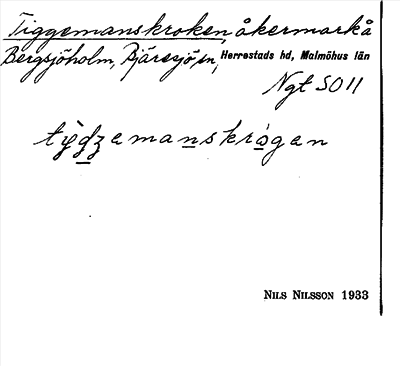 Tiggemanskroken, åkermark å
Bergsjöholm, Bjäresjö, sn, Herrestads hd, Malmöhus län
Ngt SO 11
tẙdzemanskrògan
NILS NILSSON 1933